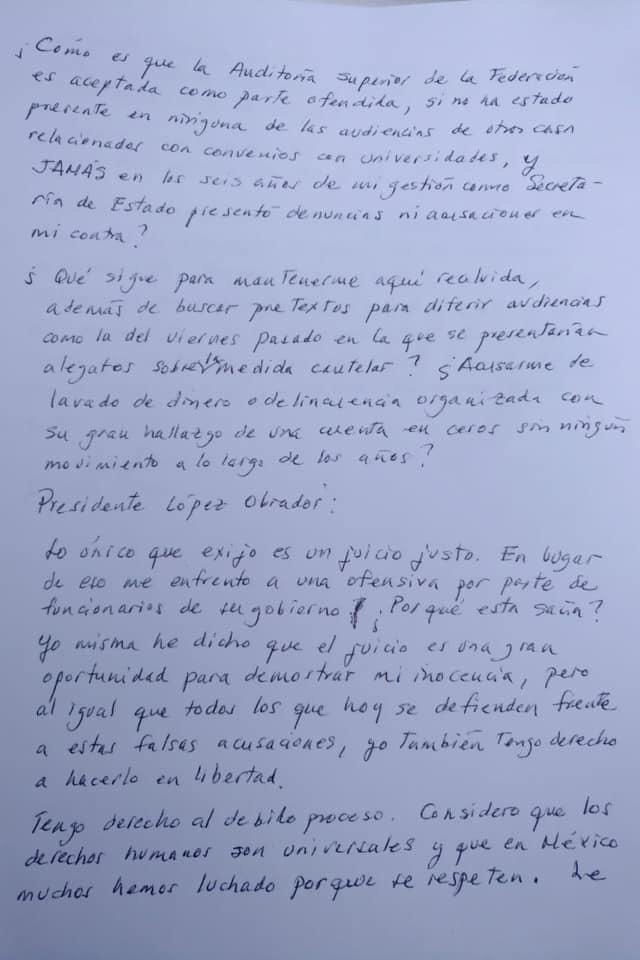 ¿Cómo es que la Auditoría Superior de la Federación
es aceptada como parte ofendida, si no ha estado
presente en ninguna de las audiencias de otros casos
relacionados con convenios con universidades, y
JAMÁS en los seis años de mi gestión como Secreta-
ría de Estado presentó denuncias ni acusaciones en
mi contra?
¿Qué sigue para mantenerme aquí recluida,
además de buscar pretextos para diferir audiencias
como la del viernes pasado en la que se presentarían
alegatos sobre la medida cautelar? ¿Acusarme de
lavado de dinero o delincuencia organizada con
su gran hallazgo de una cuenta en ceros sin ningún
movimiento a lo largo de los años?
Presidente López Obrador:
Lo único que exijo es un juicio justo. En lugar
de eso me enfrento a una ofensiva por parte de
funcionarios de su gobierno ¿Por qué esta saña?
Yo misma he dicho que el juicio es una gran
oportunidad para demostrar mi inocencia, pero
al igual que todos los que hoy se defienden frente
a estas falsas acusaciones, yo también tengo derecho
a hacerlo en libertad.
Tengo derecho al debido proceso. Considero que los
derechos humanos son universales y que en México
muchos hemos luchado porque se respeten. Le